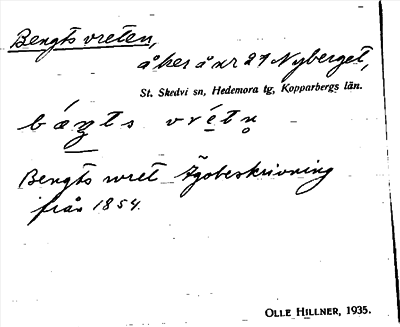 Bengtsvreten,
åker å nr 27 Nyberget,
St. Skedvi sn, Hedemora tg, Kopparbergs län.
Bengts wret Ägobeskrivning
från 1854.
OLLE HILLNER, 1935.